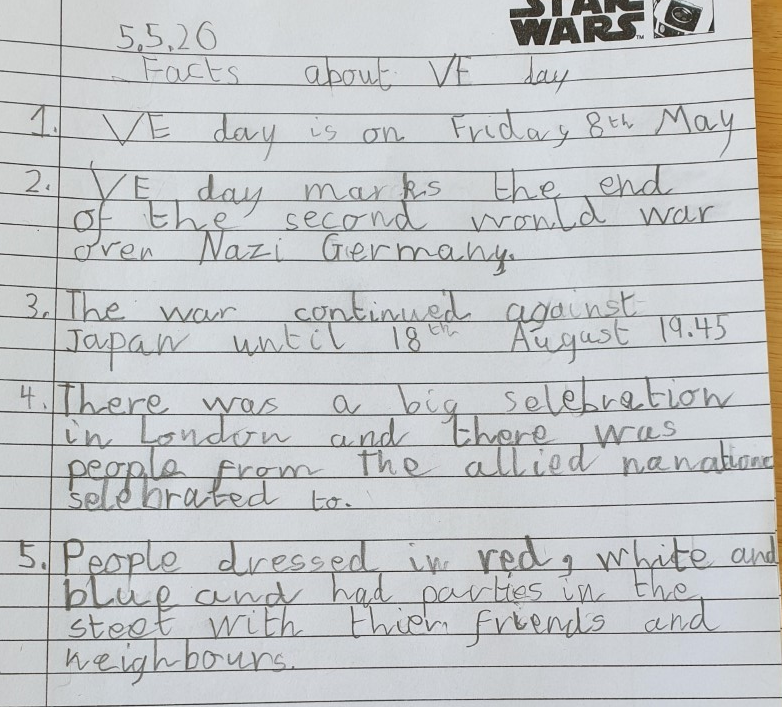 STAR
WARS
5.5.20
Facts about VE day
1. VE day is on Friday 8th May
2. VE day marks the end
of the second world war
over Nazi Germany.
3. The war continued against
Japan until 18th August 19.45
4. There was a big selebration
in London and there was
people from the allied
selebrated to.
5. People dressed in red, white and
blue and had parties in the
steet with thier friends and
neighbours.